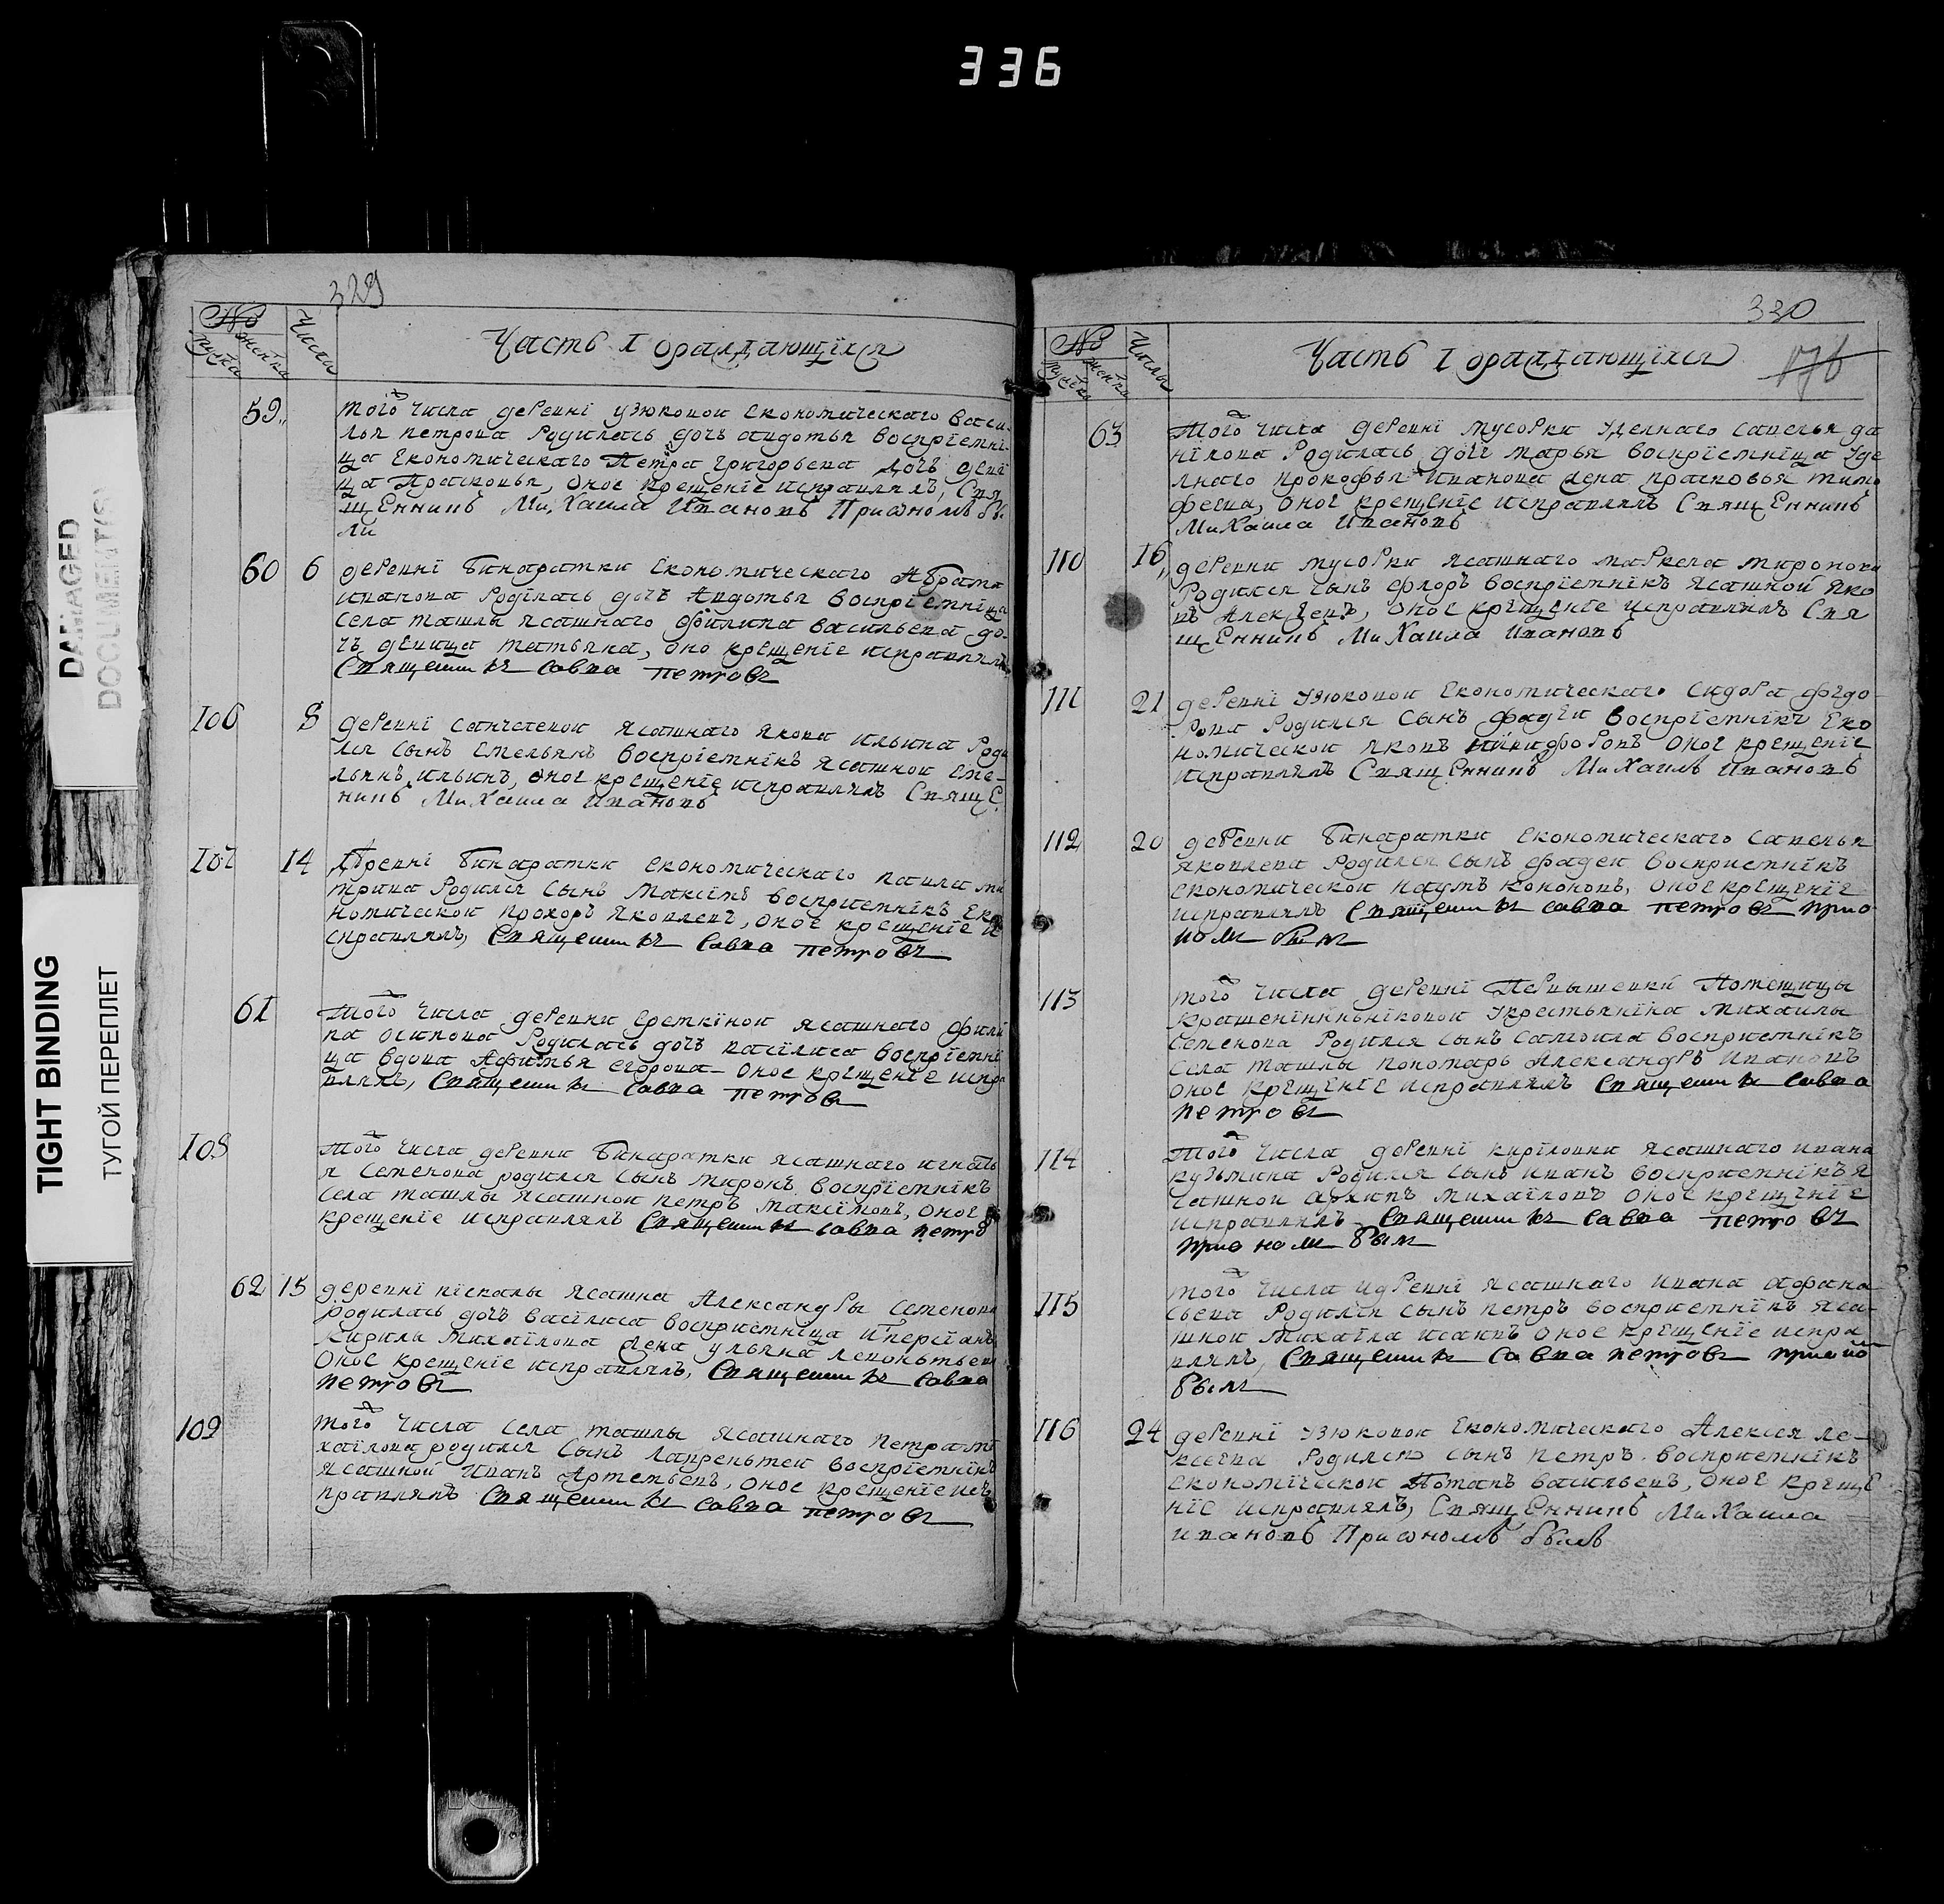 336
DAMAGED
DOCUMENT/S
TIGHT BINDING
ТУГОЙ ПЕРЕПЛЕТ
329
№
Числа
мужска
женска
Часть I ораждающихся
59
Того числа деревнї узюковои економическаго Васи-
лья петрова Родилась дочь авдотья воспрїемнї-
ца Економическаго Петра григорьева дочь деви
ца Прасковья, оное крещенїе исправлялъ, Свя
щЕнникъ МиХаила Ивановъ При ономъ бы
ли
60 6 деревнї Бинарадки Економическаго Абрама
иванова Родїлась дочь Авдотья Воспрїемнїца
села ташлы ясашнаго Филипа васильева до-
чь девица татьяна, оно крещенїе исправлялъ
Священникъ савва петровъ
106 8 деревнї санчелеевои ясашнаго якова ильина Роди
лся сынъ Емельянъ воспрїемнїкъ ясашнои Еме-
льянъ ильинъ, оное крещенїе исправлялъ СвящЕ
нникъ МиХаила Ивановъ
107 14 Деревнї Бинарадки економическаго павла ми
трива Родился сынъ Максїмъ воспрїемнїкъ Еко
номическои прохоръ яковлевъ, оное крещенїе и
справлялъ, Священникъ Савва петровъ
61 Того числа деревни еремкїнои ясашнаго Фили
па осипова Родилась дочь васїлиса воспрїемнї
ца вдова Афимья егорова оное крещенїе испра
влялъ, Священникъ савва петровъ
108 Того числа деревни Бинарадки ясашнаго игнать
я семенова родился сынъ миронъ воспрїемнїкъ
села ташлы ясашнои петръ максїмовъ, оное
крещенїе исправлялъ Священникъ савва петро
62 15 деревнї пїскалы ясашна Александры семенова
родилась дочь василиса воспрїемнїца
кирилы михаїлова жена ульяна
Оное крещенїе исправлялъ, Священникъ савва
петровъ
109 Того числа села ташлы ясашнаго петра ми
хаїлова родился сынъ лаврентеи воспрїемнїкъ
ясашнои иванъ Артемьевъ, оное крещенїе ис
правлялъ Священникъ савва петровъ
330
176
№
Числы
мужска
женска
Часть I ораждающїхся
63 Того числа деревнї мусорки уделнаго савелья да
нїлова Родилась дочь марья воспрїемнїца уде
лнаго прокофья иванова жена прасковья тимо
феева, оное крещенїе исправлялъ СвящЕнникъ
МиХаила Ивановъ
110 16 деревни мусорки ясашнаго маркела миронова
Родился сынъ флоръ воспрїемнїкъ ясашнои яко
въ Алекеевъ, оное крещенїе исправлялъ Свя
щЕнникъ МиХаила Ивановъ
111 21 деревнї узюковои Економическаго сидора федо-
рова Родился сынъ фадеи воспрїемнїкъ Еко
номическои яковъ никифоровъ оное крещенїе
исправлялъ СвящЕнникъ МиХаилъ Ивановъ
112 20 деревни Бинарадки економическаго савелья
яковлева Родился сынъ фадеи воспрїемнїкъ
економическои наумъ кононовъ, оное крещенїе
исправлялъ Священникъ савва петровъ при о
номъ былъ
113 Того числа деревнї Первышевки Помещицы
у крестьянїна михаилы
семенова Родился сынъ самоила воспрїемнїкъ
села ташлы пономарь Александръ Ивановъ
оное крещенїе исправлялъ Священникъ савва
петровъ
114 Того числа деревнї курїловки ясашнаго ивана
кузьмина Родился сынъ иванъ воспрїемнїкъ я
сашнои архипъ михаїловъ оное крещенїе
исправлялъ Священникъ савва петровъ
при ономъ былъ
115 того числа и деревнї ясашнаго ивана афана
сьева Родился сынъ петръ воспрїемнїкъ яса
шнои Михаїла исаивъ оное крещенїе испра
влялъ, Священникъ савва петровъ при он
былъ
116 24 деревнї узюковои Економическаго Алексея ле-
Родился сынъ петръ воспрїемнїкъ
Економїческои Потапъ васильевъ, оное креще
нїе исправлялъ, СвящЕнникъ МиХаила
ивановъ При ономъ былъ